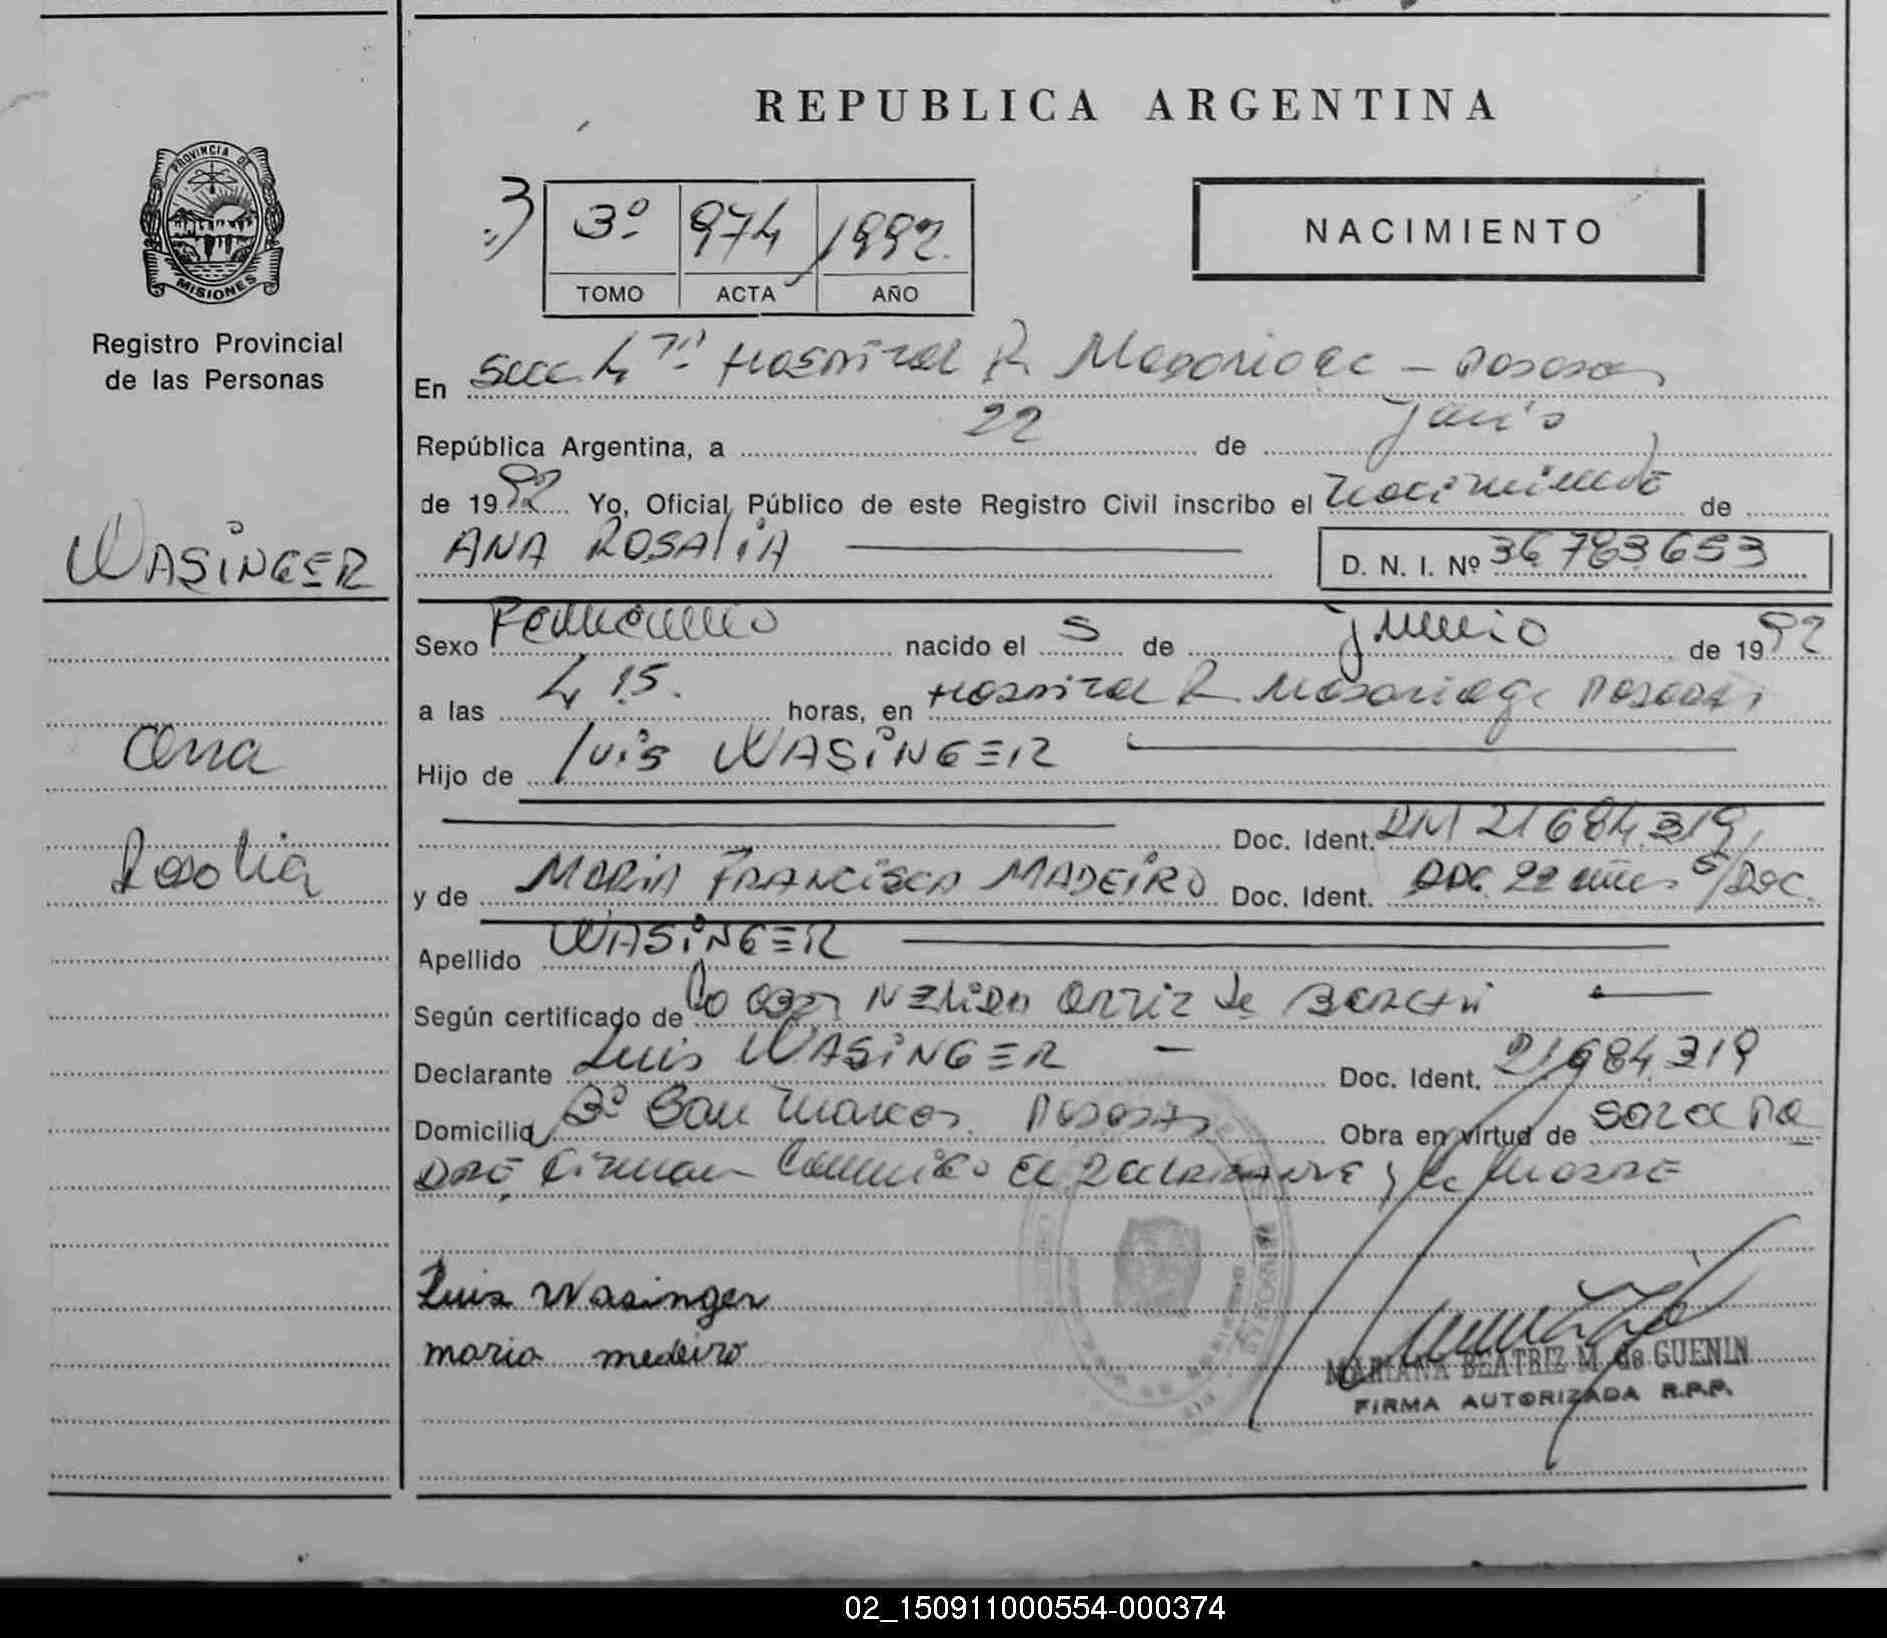 REPUBLICA ARGENTINA
PROVINCIA DE
MISIONES
Registro Provincial
de las Personas
3º 974 1992
TOMO ACTA AÑO
NACIMIENTO
En Secc 4ª Hospital R Madariaga - Posadas
República Argentina, a 22 de Junio
de 1992 Yo, Oficial Público de este Registro Civil inscribo el nacimiento de
WASINGER
ANA ROSALIA D. N. I. Nº 36783653
Sexo Femenino nacido el 5 de junio de 1992
a las 4 15. horas, en Hospital R Madariaga Posadas
Ana
Hijo de Luis WASINGER
Doc. Ident. DNI 21684.319
Rosalia
y de MARIA FRANCISCA MADEIRO Doc. Ident. 22 años S/Doc.
Apellido WASINGER
Según certificado de NELIDA ORTIZ de
Declarante Luis WASINGER - Doc. Ident. 21684.319
Domicilio Bº San Marcos. Posadas Obra en virtud de
Firman Conmigo El Declarante y la Madre
Luis Wasinger
maria medeiro
MARIANA BEATRIZ M. de GUENIN
FIRMA AUTORIZADA R.P.P.
02_150911000554-000374